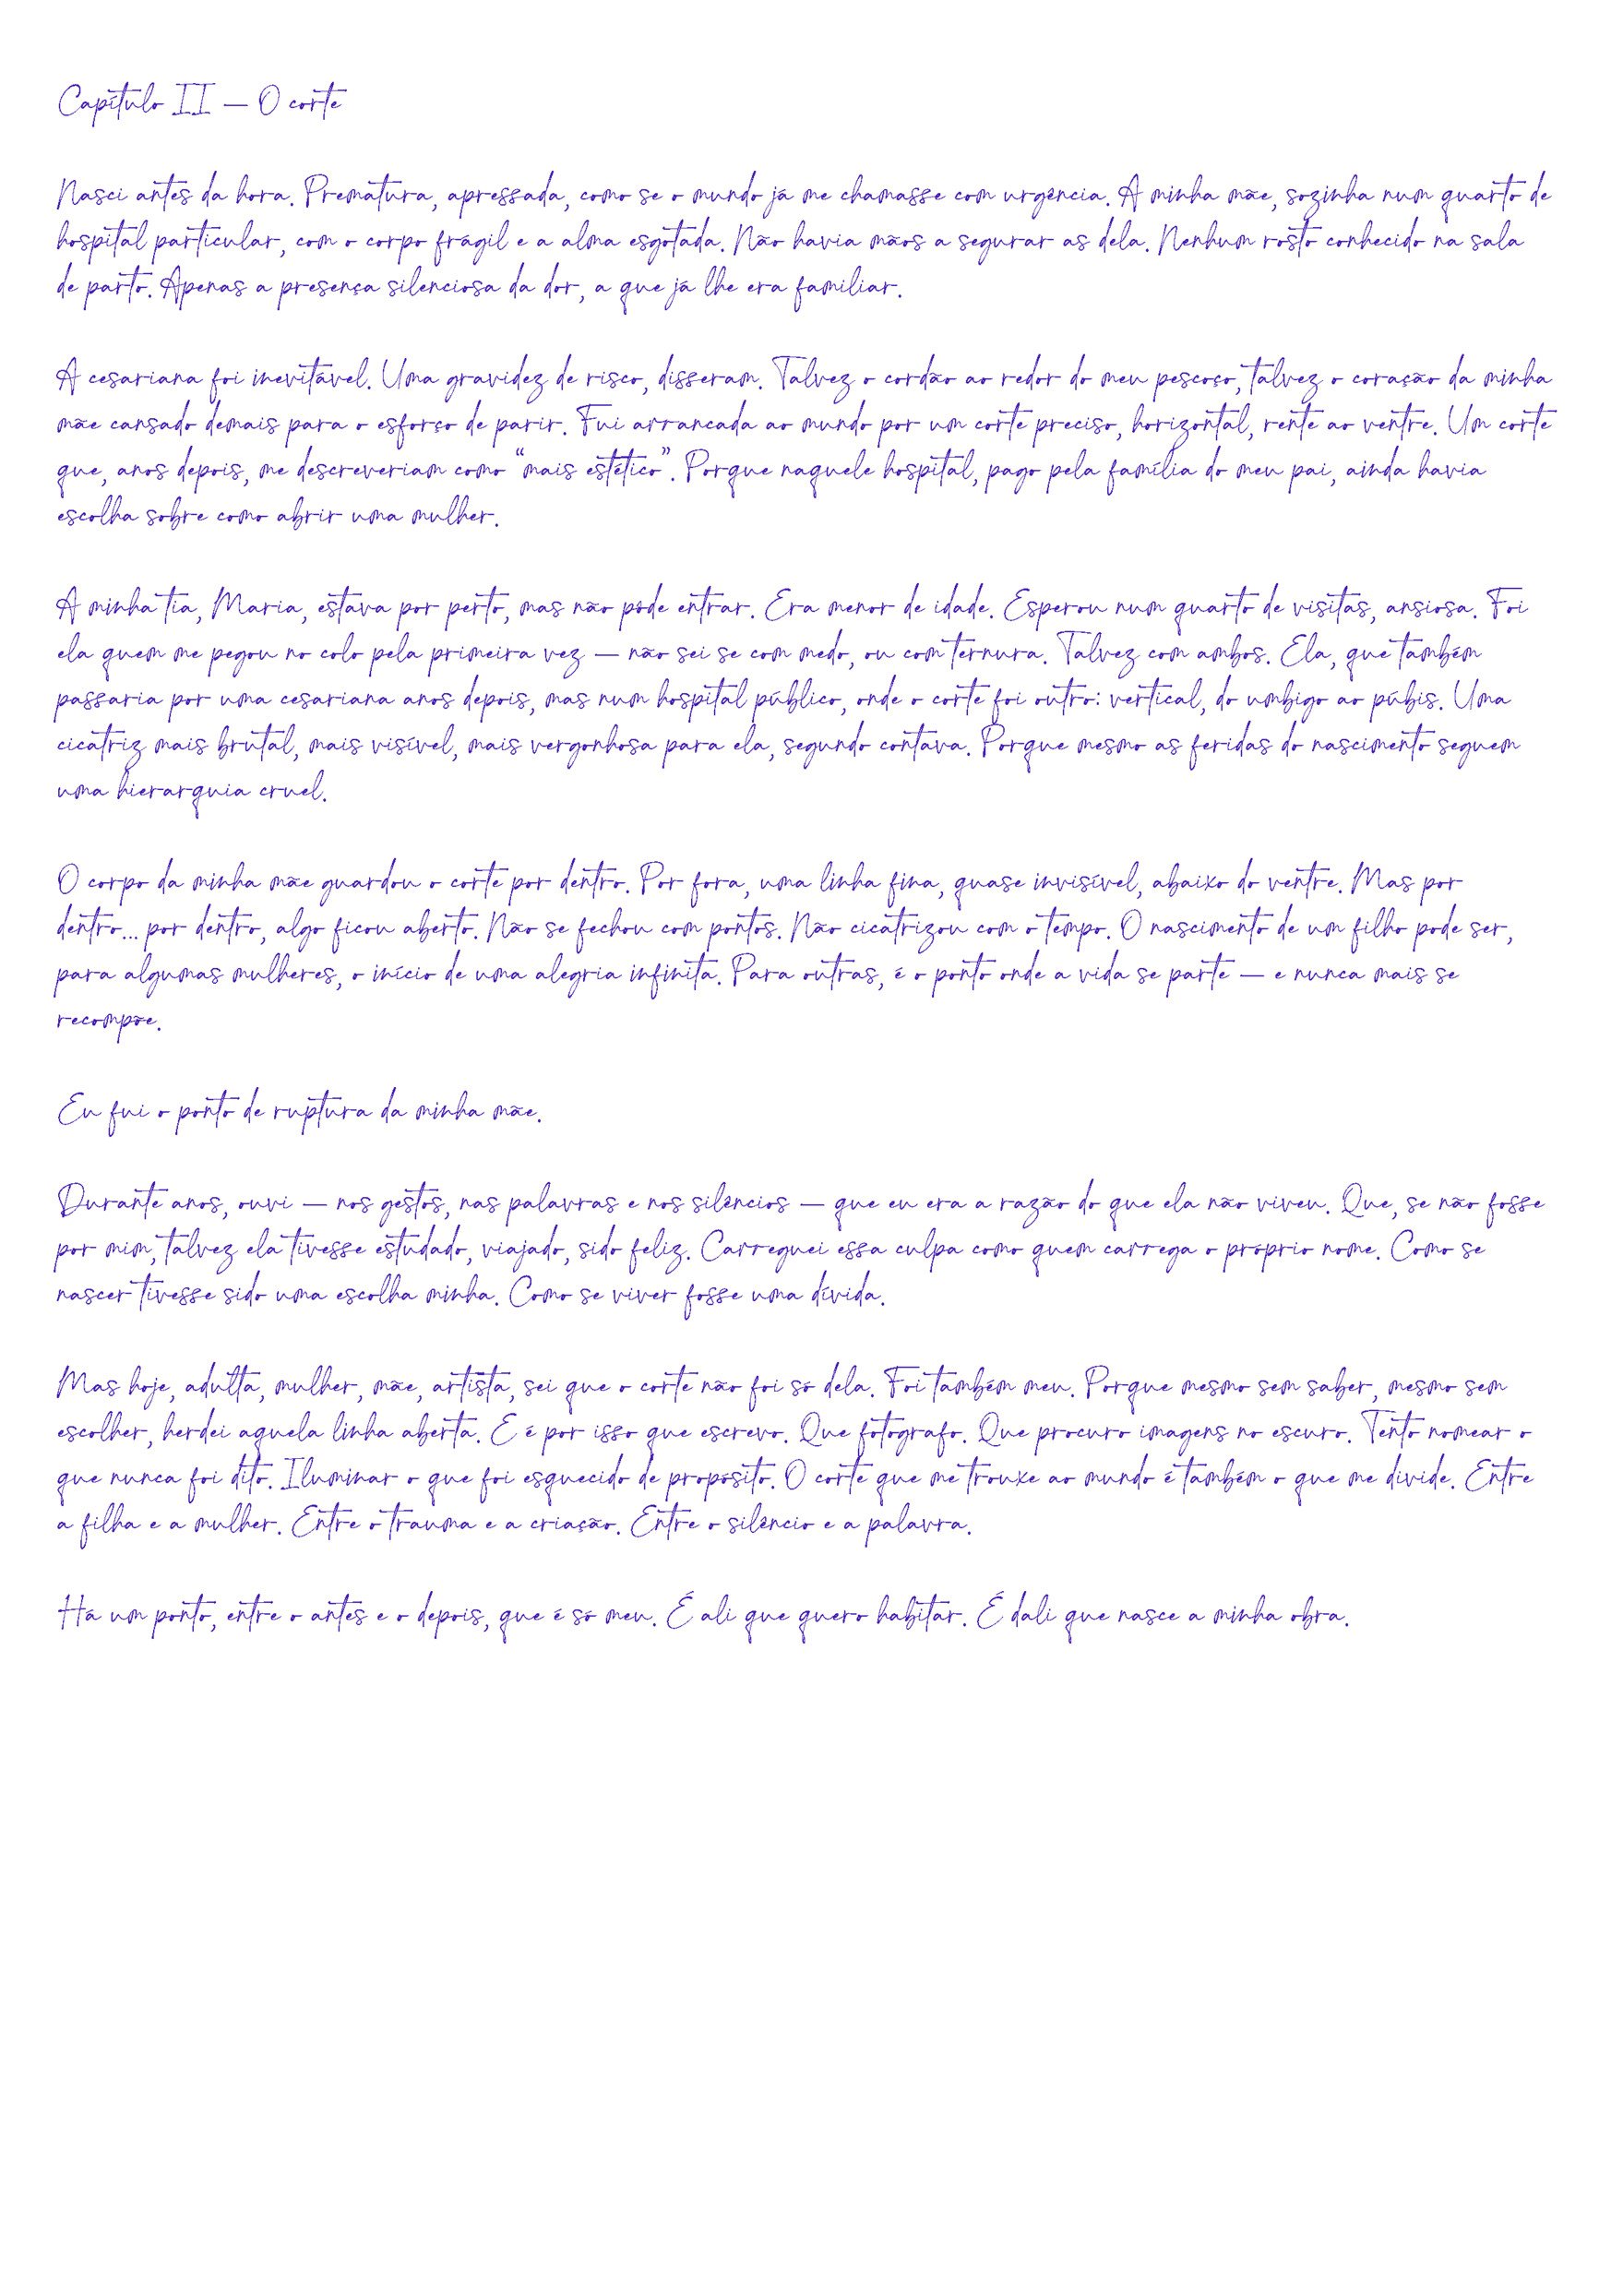 Capítulo II — O corte
Nasci antes da hora. Prematura, apressada, como se o mundo já me chamasse com urgência. A minha mãe, sozinha num quarto de
hospital particular, com o corpo frágil e a alma esgotada. Não havia mãos a segurar as dela. Nenhum rosto conhecido na sala
de parto. Apenas a presença silenciosa da dor, a que já lhe era familiar.
A cesariana foi inevitável. Uma gravidez de risco, disseram. Talvez o cordão ao redor do meu pescoço, talvez o coração da minha
mãe cansado demais para o esforço de parir. Fui arrancada ao mundo por um corte preciso, horizontal, rente ao ventre. Um corte
que, anos depois, me descreveriam como “mais estético”. Porque naquele hospital, pago pela família do meu pai, ainda havia
escolha sobre como abrir uma mulher.
A minha tia, Maria, estava por perto, mas não pôde entrar. Era menor de idade. Esperou num quarto de visitas, ansiosa. Foi
ela quem me pegou no colo pela primeira vez — não sei se com medo, ou com ternura. Talvez com ambos. Ela, que também
passaria por uma cesariana anos depois, mas num hospital público, onde o corte foi outro: vertical, do umbigo ao púbis. Uma
cicatriz mais brutal, mais visível, mais vergonhosa para ela, segundo contava. Porque mesmo as feridas do nascimento seguem
uma hierarquia cruel.
O corpo da minha mãe guardou o corte por dentro. Por fora, uma linha fina, quase invisível, abaixo do ventre. Mas por
dentro... por dentro, algo ficou aberto. Não se fechou com pontos. Não cicatrizou com o tempo. O nascimento de um filho pode ser,
para algumas mulheres, o início de uma alegria infinita. Para outras, é o ponto onde a vida se parte — e nunca mais se
recompõe.
Eu fui o ponto de ruptura da minha mãe.
Durante anos, ouvi — nos gestos, nas palavras e nos silêncios — que eu era a razão do que ela não viveu. Que, se não fosse
por mim, talvez ela tivesse estudado, viajado, sido feliz. Carreguei essa culpa como quem carrega o próprio nome. Como se
nascer tivesse sido uma escolha minha. Como se viver fosse uma dívida.
Mas hoje, adulta, mulher, mãe, artista, sei que o corte não foi só dela. Foi também meu. Porque mesmo sem saber, mesmo sem
escolher, herdei aquela linha aberta. E é por isso que escrevo. Que fotografo. Que procuro imagens no escuro. Tento nomear o
que nunca foi dito. Iluminar o que foi esquecido de propósito. O corte que me trouxe ao mundo é também o que me divide. Entre
a filha e a mulher. Entre o trauma e a criação. Entre o silêncio e a palavra.
Há um ponto, entre o antes e o depois, que é só meu. É ali que quero habitar. É dali que nasce a minha obra.